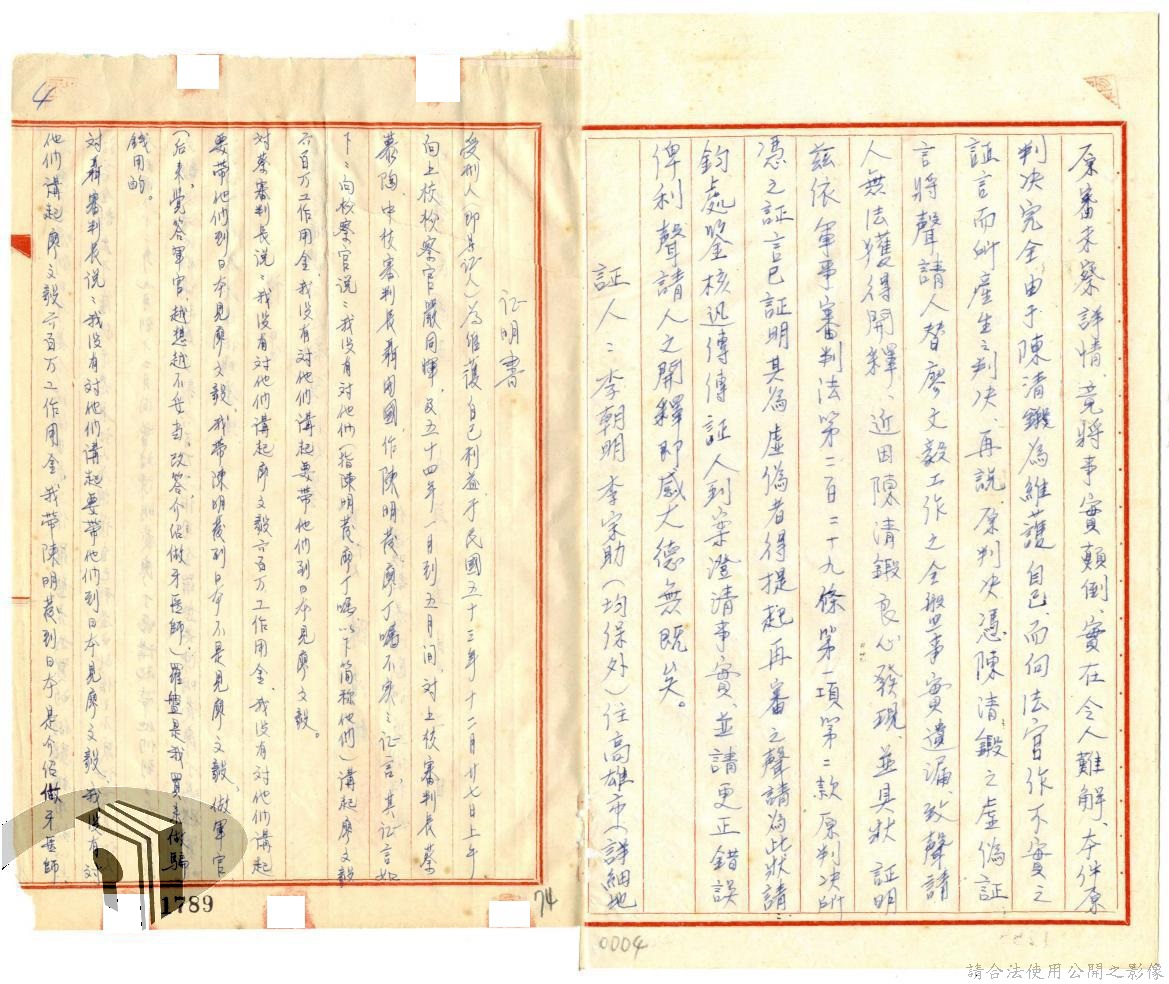 原審未察詳情竟將事實顛倒、實在令人難解、本件原
判決完全由于陳清鍛為維護自己、而向法官作不實之
証言而所產生之判決、再說、原判決憑陳清鍛之虛偽証
言將聲請人替廖文毅工作之全盤事實遺漏、致聲請
人無法獲得開釋、近因陳清鍛良心發現、並具狀証明
茲依軍事審判法第二百二十九條第一項第二款原判決所
憑之証言已証明其為虛偽者得提起再審之聲請為此狀請
鈞處鑒核迅傳傳証人到案澄清事實、並請更正錯誤
俾利聲請人之開釋即感大德無既矣。
証人：李朝明 李宗助（均保外）住高雄市、詳細地
0004
证明書
受刑人（即某证人）為維護自己利益、于民國五十三年十二月廿七日上午
向上校檢察官嚴同暉、及五十四年一月到五月间、对上校審判長蔡
慕陶中校審判長聶開國、作陳明發、廖丁嘴不实之证言、其证言如
下：向檢察官说：我没有对他们（指陳明發、廖丁嘴以下简称他们）講起廖文毅
六百万工作用金、我没有对他们講起要带他们到日本見廖文毅。
对蔡審判長说：我没有对他们講起廖文毅六百万工作用金、我没有对他们講起
要带他们到日本見廖文毅、我带陳明發到日本不是見廖文毅、做軍官
（后来、覺答軍官、越想越不妥当、改答介绍做牙医師）羅盤是我買来做騙
錢用的。
对聶審判長说：我没有对他们講起要带他们到日本見廖文毅、我没有对
他们講起廖文毅六百万工作用金、我带陳明發到日本是介绍做牙医師
4
1789
74
請合法使用公開之影像